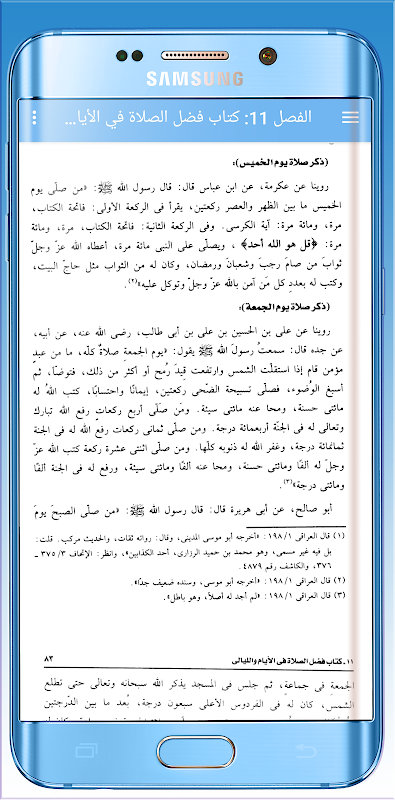 SAMSUNG
الفصل 11: كتاب فضل الصلاة في الأيا...
(ذكر صلاة يوم الخميس):
روينا عن عكرمة، عن ابن عباس قال: قال رسول الله ﷺ: «من صلّى يوم
الخميس ما بين الظهر والعصر ركعتين، يقرأ فى الركعة الأولى: فاتحة الكتاب،
مرة، ومائة مرة: آية الكرسى. وفى الركعة الثانية: فاتحة الكتاب، مرة، ومائة
مرة: ﴿قل هو الله أحد﴾، ويصلّى على النبى مائة مرة، أعطاه الله عزّ وجلّ
ثوابَ من صامَ رجبَ وشعبانَ ورمضان، وكان له من الثواب مثل حاجّ البيت،
وكتب له بعددِ كل مَن آمن بالله عزّ وجلّ وتوكل عليه»(٢).
(ذكر صلاة يوم الجمعة):
روينا عن على بن الحسين بن على بن أبى طالب، رضى الله عنه، عن أبيه،
عن جده قال: سمعتُ رسولَ الله ﷺ يقول: «يوم الجمعةِ صلاةٌ كلّه، ما من عبدٍ
مؤمن قام إذا استقلّت الشمس وارتفعت قِيدَ رُمْحٍ أو أكثر من ذلك، فتوضّأ، ثم
أسبغ الوُضوء، فصلّى تسبيحة الضّحى ركعتين، إيمانًا واحتسابًا، كتب اللهُ له
مائتى حسنة، ومحا عنه مائتى سيئة. ومَن صلّى أربع ركعاتٍ رفع الله تبارك
وتعالى له فى الجنّة أربعمائة درجة. ومن صلّى ثمانى ركعات رفع الله له فى الجنة
ثمانمائة درجة، وغفر الله له ذنوبه كلّها. ومن صلّى اثنتى عشرة ركعة كتب الله عزّ
وجلّ له ألفًا ومائتى حسنة، ومحا عنه ألفًا ومائتى سيئة، ورفع له فى الجنة ألفًا
ومائتى درجة»(٣).
أبو صالح، عن أبى هريرة قال: قال رسول الله ﷺ: «من صلّى الصبحَ يومَ
(١) قال العراقى ١/ ١٩٨: «أخرجه أبو موسى المدينى، وقال: رواته ثقات، والحديث مركب. قلت:
بل فيه غير مسمى، وهو محمد بن حميد الرازى، أحد الكذابين»، وانظر: الإتحاف ٣/ ٣٧٥ ـ
٣٧٦، والكاشف رقم ٤٨٧٩.
(٢) قال العراقى ١/ ١٩٨: «أخرجه أبو موسى، وسنده ضعيف جدًا».
(٣) قال العراقى ١/ ١٩٨: «لم أجد له أصلاً، وهو باطل».
١١. كتاب فضل الصلاة فى الأيام والليالى ٨٣
الجمعة فى جماعةٍ، ثم جلس فى المسجد يذكر الله سبحانه وتعالى حتى تطلع
الشمس، كان له فى الفردوس الأعلى سبعون درجة، بُعد ما بين الدرجتين